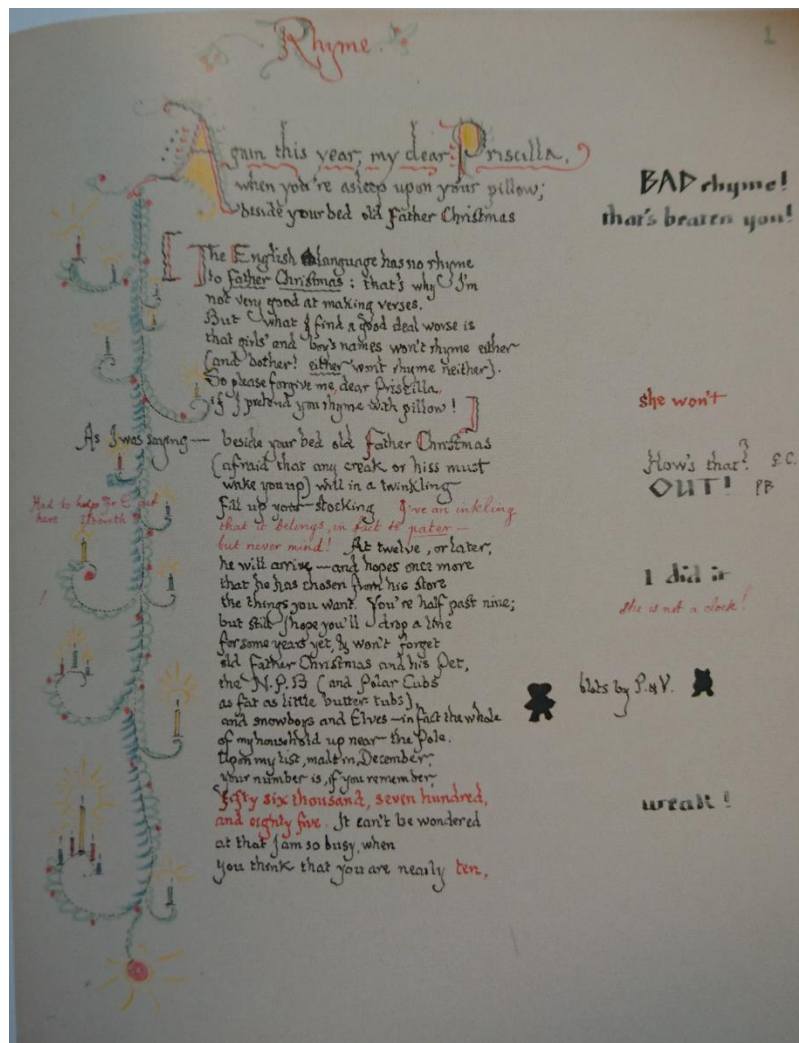 Rhyme.
1
Again this year, my dear Priscilla,
when you're asleep upon your pillow;
BAD rhyme!
beside your bed old Father Christmas
that's beaten you!
[The English language has no rhyme
to Father Christmas: that's why I'm
not very good at making verses.
But what I find a good deal worse is
that girls' and boy's names won't rhyme either
(and bother! either won't rhyme neither).
So please forgive me, dear Priscilla,
if I pretend you rhyme with pillow!]
she won't
As I was saying —
beside your bed old Father Christmas
(afraid that any creak or hiss must
How's that? F.C.
wake you up) will in a twinkling
OUT! PB
fill up your stocking I've an inkling
Had to help Fr C out
here
that it belongs, in fact to pater —
but never mind! At twelve, or later,
he will arrive — and hopes once more
that he has chosen from his store
I did it
the things you want. You're half past nine;
she is not a clock!
but still I hope you'll drop a line
for some years yet, & won't forget
old Father Christmas and his Pet,
the N.P.B (and Polar Cubs
blots by P. & V.
as fat as little butter-tubs),
and snowboys and Elves — in fact the whole
of my household up near the Pole.
Upon my list, made in December,
your number is, if you remember
fifty six thousand, seven hundred,
weak!
and eighty five. It can't be wondered
at that I am so busy, when
you think that you are nearly ten,